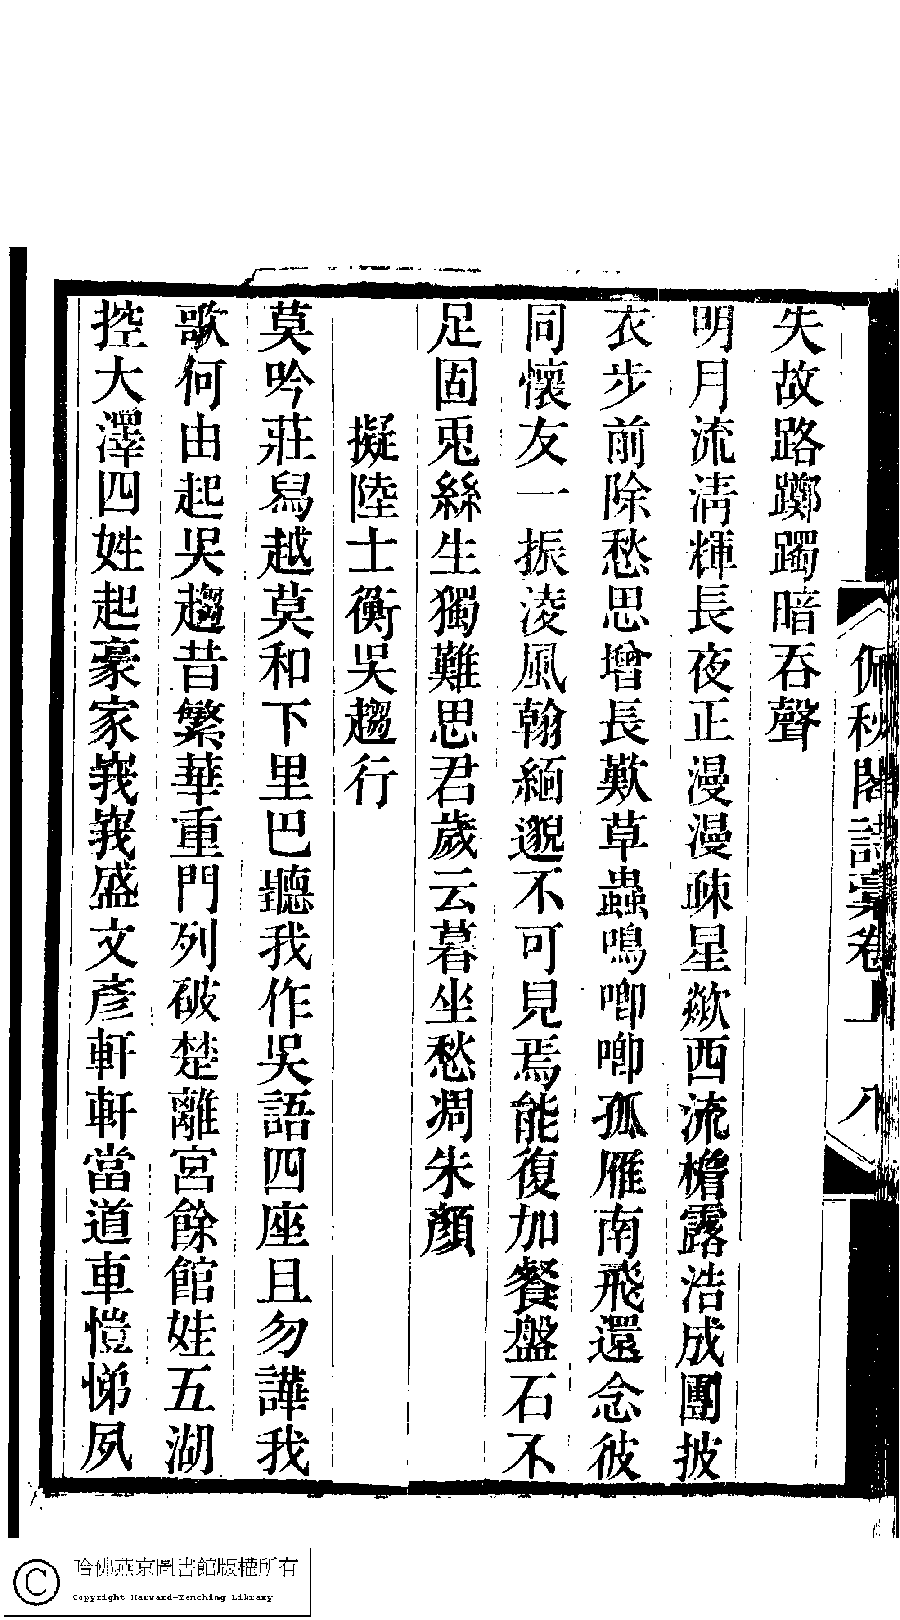 佩秋閣詩稾卷上　八
失故路躑躅暗吞聲
明月流淸輝長夜正漫漫疎星歘西流檐露浩成團披
衣步前除愁思增長歎草蟲鳴喞喞孤雁南飛還念彼
同懷友一振淩風翰緬邈不可見焉能復加餐盤石不
足固兎絲生獨難思君歲云暮坐愁凋朱顏
擬陸士衡吳趨行
莫吟莊舃越莫和下里巴聽我作吳語四座且勿譁我
歌何由起吳趨昔繁華重門列破楚離宮餘館娃五湖
控大澤四姓起豪家峩峩盛文彥軒軒當道車愷悌夙
哈佛燕京圖書館版權所有
Copyright Harvard-Yenching Library